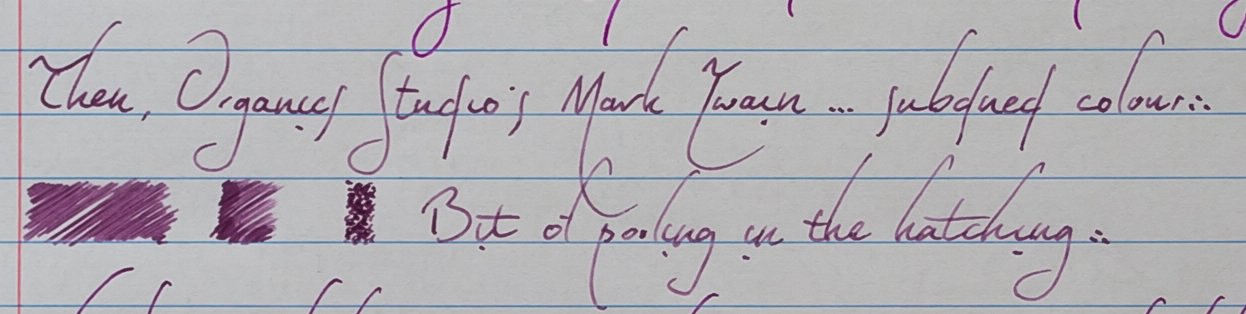 Then, Organics Studio's Mark Twain ... subdued colour...
Bit of pooling in the hatching...